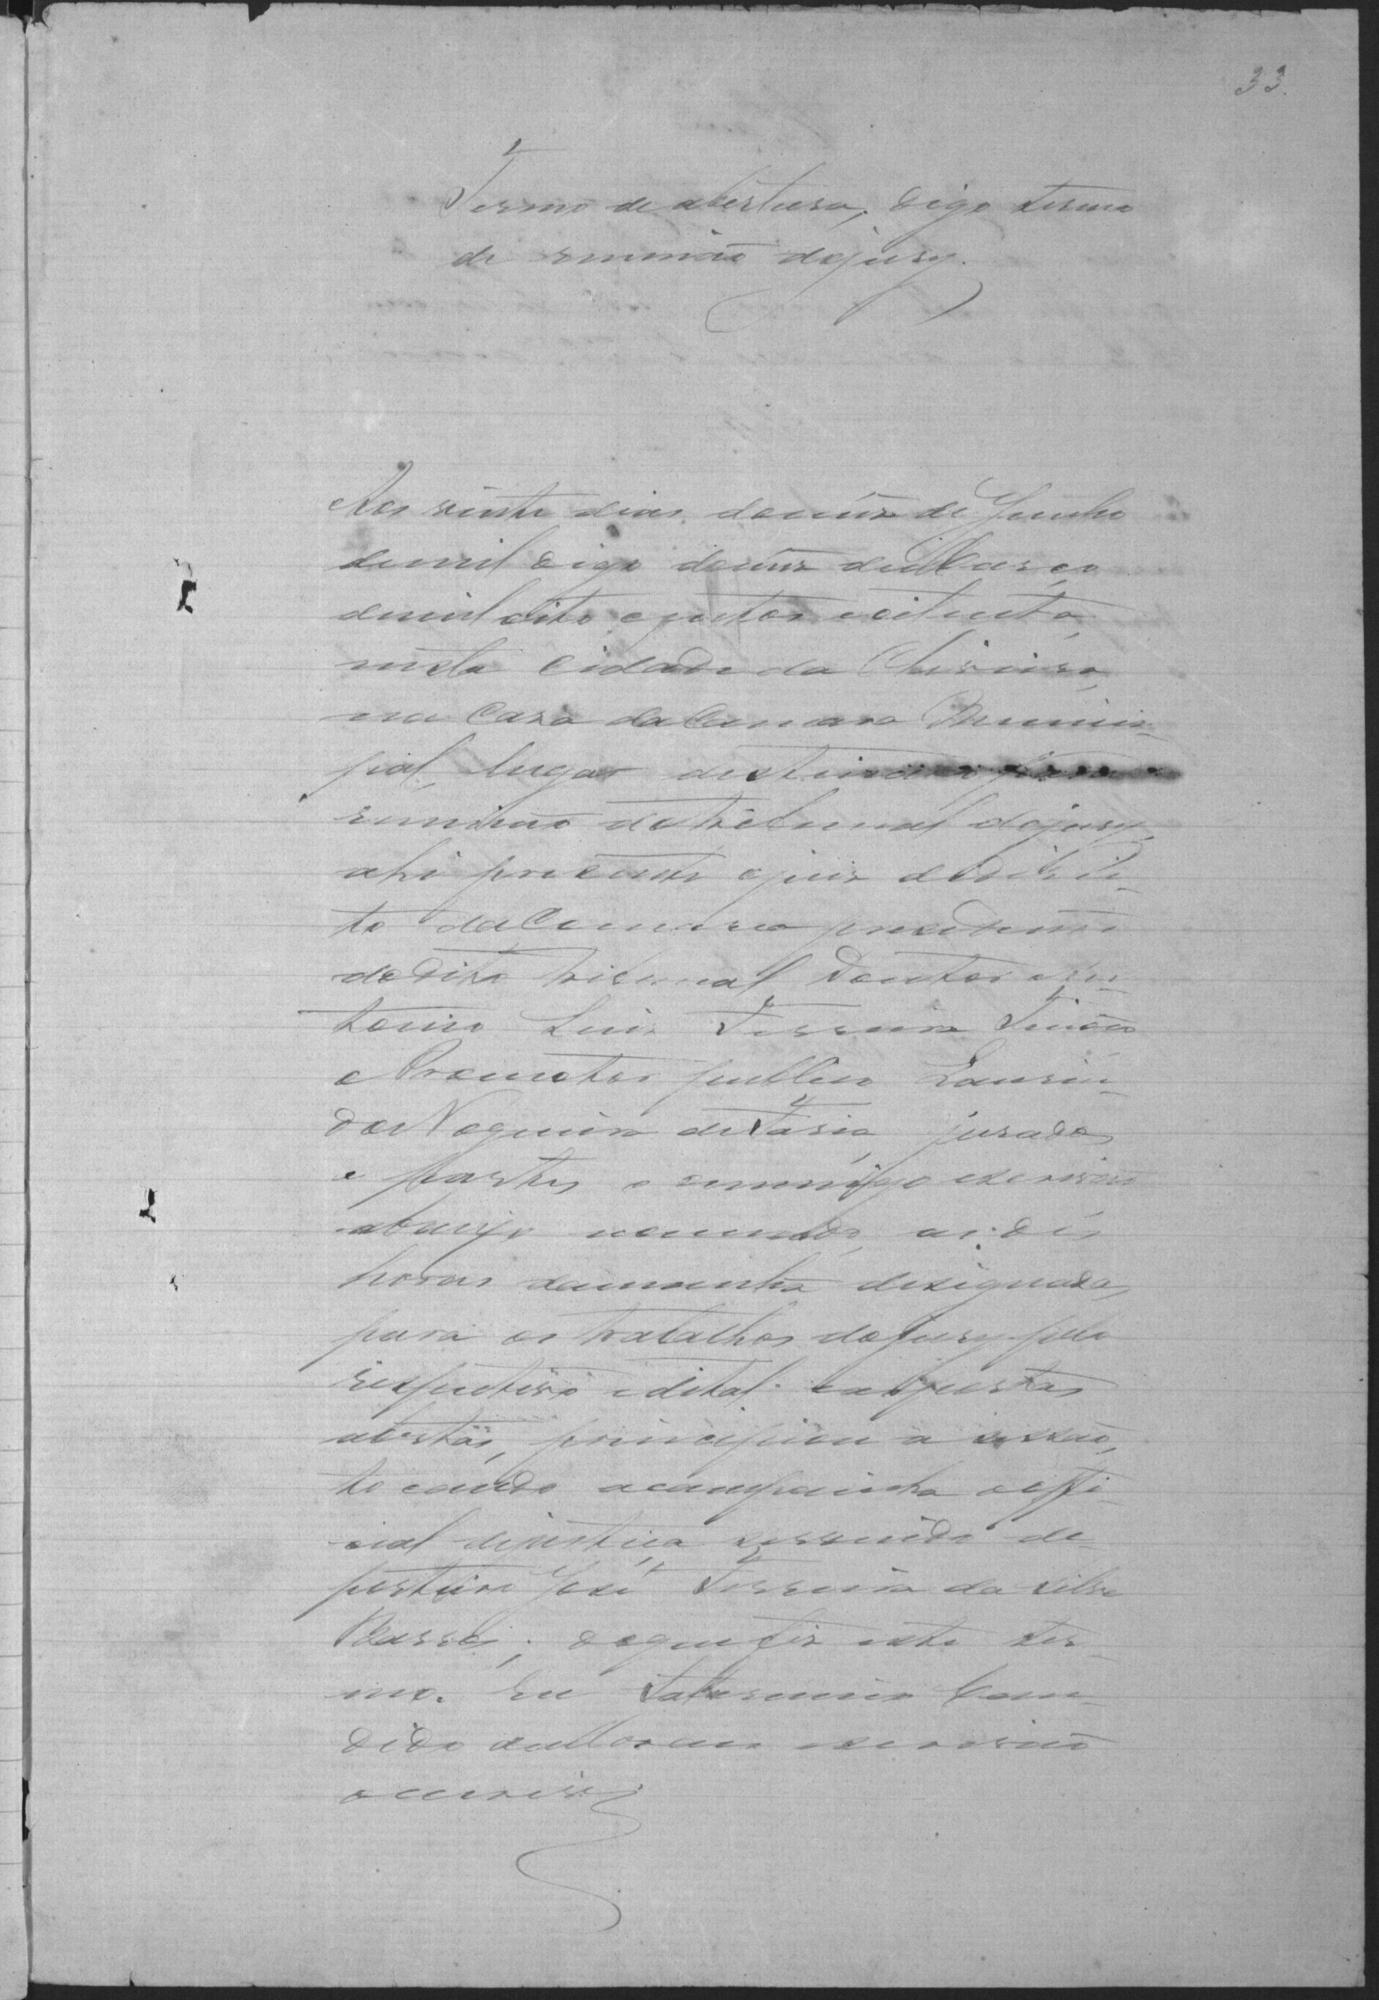 33.
Termo de abertura, digo termo
de reunião do jury.
Aos vinte dias do mez de Junho
de mil digo do mez de Março
de mil oito centos e oitenta,
nesta Cidade da
na Casa da Camara Munici-
pial, lugar destinado para
reunião do tribunal do jury,
ahi prezente o juiz de direi-
to da Comarca prezidente
do dito tribunal Doutor An-
tonio Luiz Ferreira Tinôco
o Promotor publico Laurin-
do Nogueira de Faria, jurados
e partes e commigo escrivão
abaixo nomeado, as dés
horas da manhã dezignadas
para os trabalhos do jury pelo
respectivo edital e as portas
abertas, principiou a sessão,
tocando a campainha o offi-
cial de justiça servindo de
porteiro José Ferreira da Silva
Barros; do que fiz este ter-
mo. Eu Saturnino Can-
dido de Moraes escrivão
o escrevi